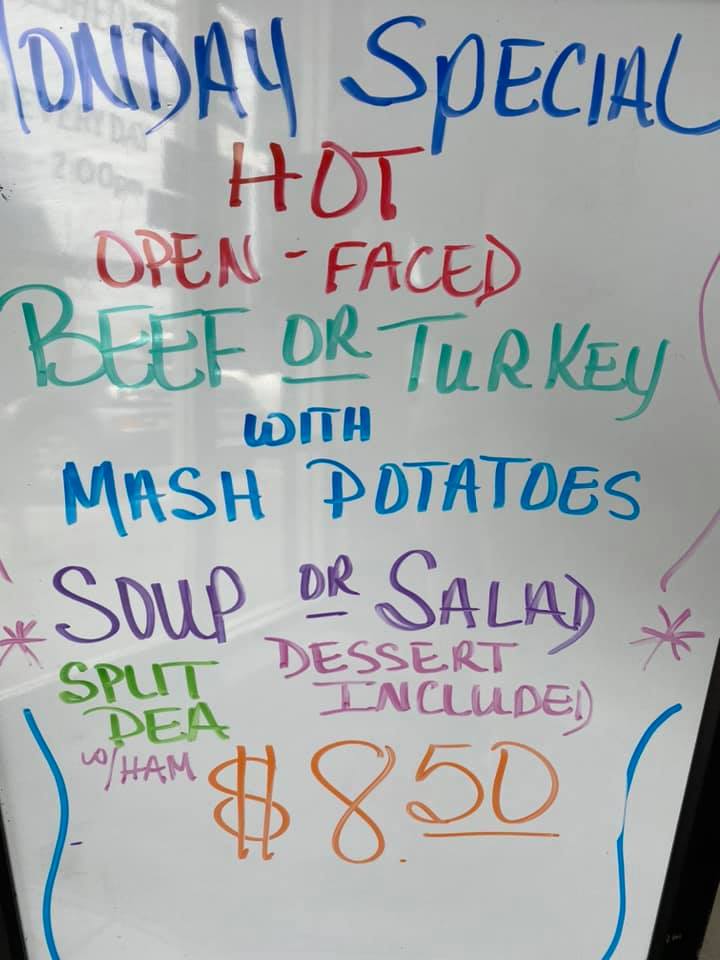 MONDAY SPECIAL
HOT
OPEN-FACED
BEEF OR TURKEY
WITH
MASH POTATOES
SOUP OR SALAD
SPLIT PEA W/HAM
DESSERT INCLUDED
$8.50